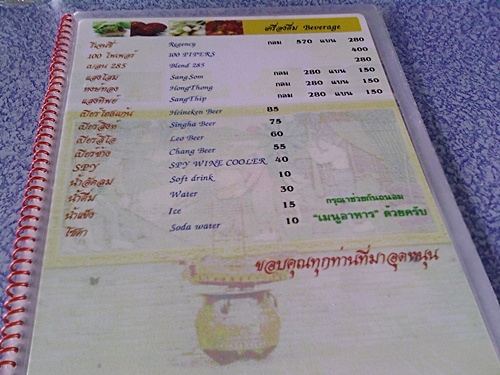 เครื่องดื่ม Beverage
รีเจนซี่ Regency กลม 570 แบน 280
100 ไพเพอร์ 100 PIPERS 400
เบลน 285 Blend 285 280
แสงโสม SangSom กลม 280 แบน 150
หงษ์ทอง HongThong กลม 280 แบน 150
แสงทิพย์ SangThip กลม 280 แบน 150
เบียร์ไฮเนเก้น Heineken Beer 85
เบียร์สิงห์ Singha Beer 75
เบียร์ลีโอ Leo Beer 60
เบียร์ช้าง Chang Beer 55
SPY SPY WINE COOLER 40
น้ำอัดลม Soft drink 10
น้ำดื่ม Water 30
น้ำแข็ง Ice 15
โซดา Soda water 10
กรุณาช่วยกันถนอม
"เมนูอาหาร" ด้วยครับ
ขอบคุณทุกท่านที่มาอุดหนุน